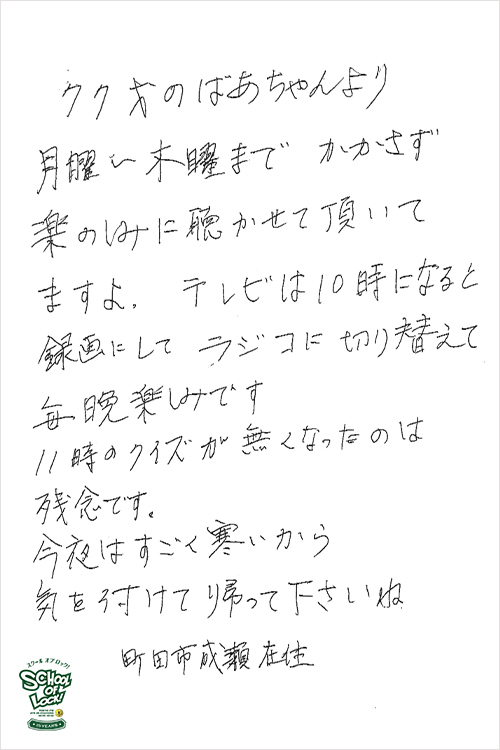 77才のばあちゃんより
月曜〜木曜まで かかさず
楽のしみに聴かせて頂いて
ますよ。 テレビは10時になると
録画にして ラジコに切り替えて
毎晩楽しみです
11時のクイズが無くなったのは
残念です。
今夜はすごく寒いから
気を付けて帰って下さいね
町田市成瀬在住
スクール オブ ロック!
SCHOOL
OF
LOCK!